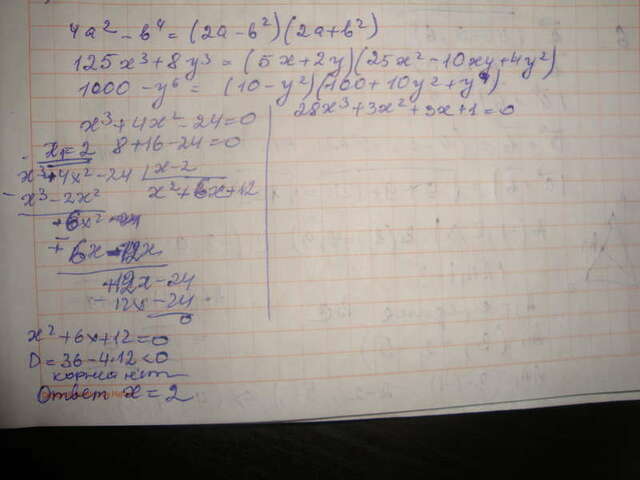 4a² - b⁴ = (2a - b²)(2a + b²)
125x³ + 8y³ = (5x + 2y)(25x² - 10xy + 4y²)
1000 - y⁶ = (10 - y²)(100 + 10y² + y⁴)
x³ + 4x² - 24 = 0
x₁ = 2 8 + 16 - 24 = 0
x³ + 4x² - 24 | x - 2
- x³ - 2x² x² + 6x + 12
6x² - 24
- 6x - 12x
+12x - 24
- 12x - 24
0
x² + 6x + 12 = 0
D = 36 - 4·12 < 0
корней нет
Ответ x = 2
28x³ + 3x² + 3x + 1 = 0